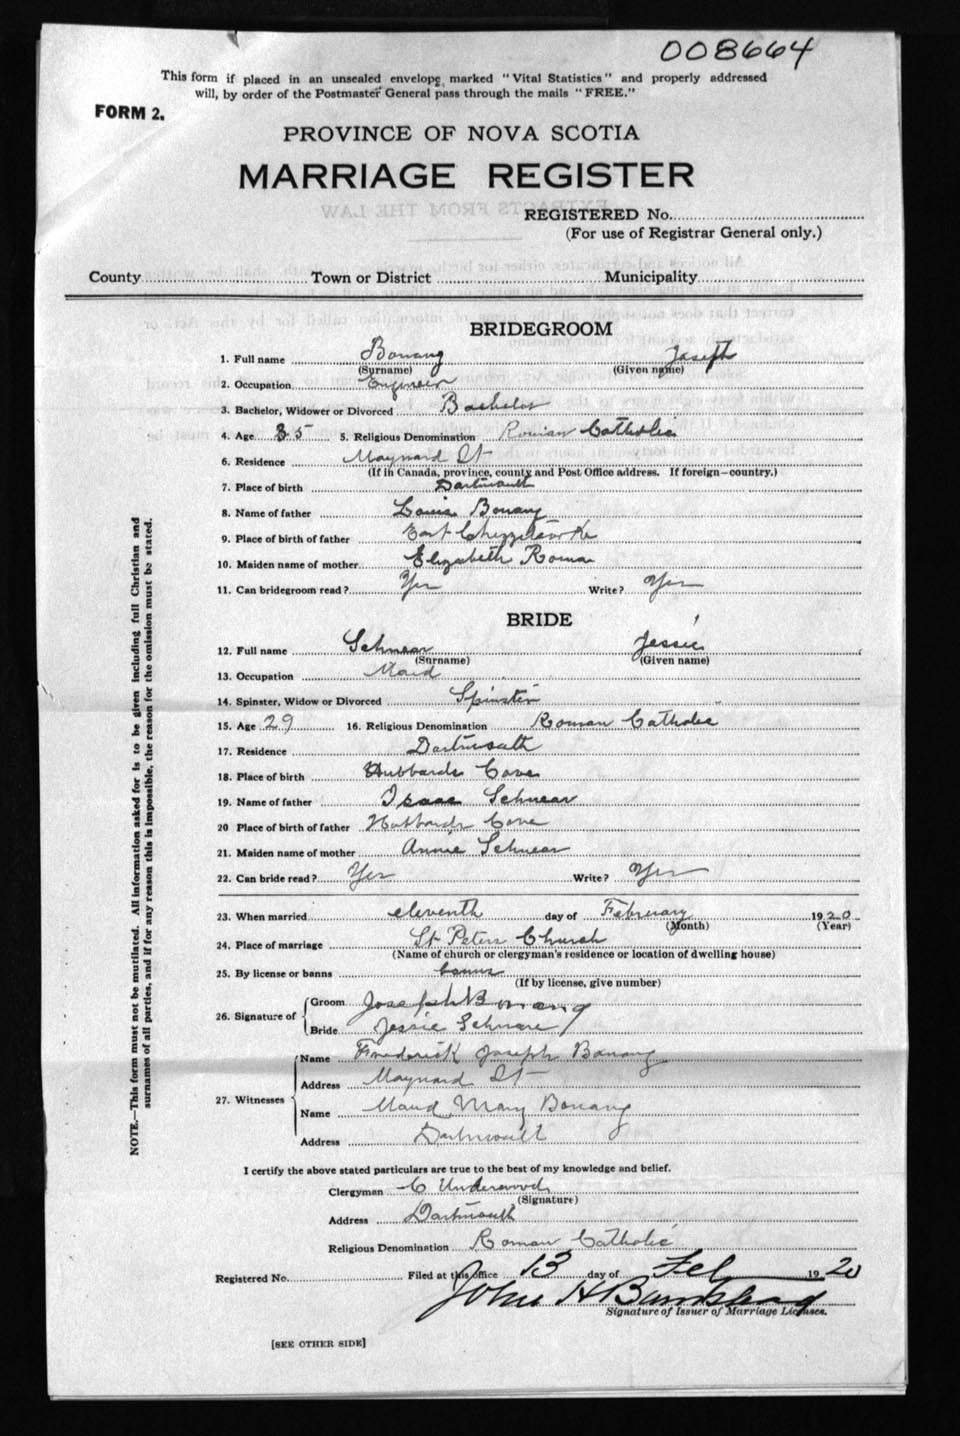 008664
This form if placed in an unsealed envelope, marked "Vital Statistics" and properly addressed
will, by order of the Postmaster General pass through the mails "FREE."
FORM 2.
PROVINCE OF NOVA SCOTIA
MARRIAGE REGISTER
EXTRACTS FROM THE LAW
REGISTERED No.
(For use of Registrar General only.)
County Town or District Municipality
BRIDEGROOM
1. Full name Bonang Joseph
(Surname) (Given name)
2. Occupation Engineer
3. Bachelor, Widower or Divorced Bachelor
4. Age 35 5. Religious Denomination Roman Catholic
6. Residence Maynard St
(If in Canada, province, county and Post Office address. If foreign—country.)
7. Place of birth Dartmouth
8. Name of father Louis Bonang
9. Place of birth of father East
10. Maiden name of mother Elizabeth Roma
11. Can bridegroom read? Yes Write? Yes
BRIDE
12. Full name Schnear Jessie
(Surname) (Given name)
13. Occupation Maid
14. Spinster, Widow or Divorced Spinster
15. Age 29 16. Religious Denomination Roman Catholic
17. Residence Dartmouth
18. Place of birth Hubbards Cove
19. Name of father Isaac Schnear
20 Place of birth of father Hubbards Cove
21. Maiden name of mother Annie Schnear
22. Can bride read? Yes Write? Yes
23. When married eleventh day of February 1920
(Month) (Year)
24. Place of marriage St Peters Church
(Name of church or clergyman's residence or location of dwelling house)
25. By license or banns banns
(If by license, give number)
26. Signature of Groom Joseph Bonang
Bride Jessie Schnare
27. Witnesses Name Frederick Joseph Bonang
Address Maynard St
Name Maud Mary Bonang
Address Dartmouth
I certify the above stated particulars are true to the best of my knowledge and belief.
Clergyman C Underwood
(Signature)
Address Dartmouth
Religious Denomination Roman Catholic
Registered No. Filed at this office 13 day of Feb 1920
John H
Signature of Issuer of Marriage Licenses.
[SEE OTHER SIDE]
NOTE.—This form must not be mutilated. All information asked for is to be given including full Christian and
surnames of all parties, and if for any reason this is impossible, the reason for the omission must be stated.